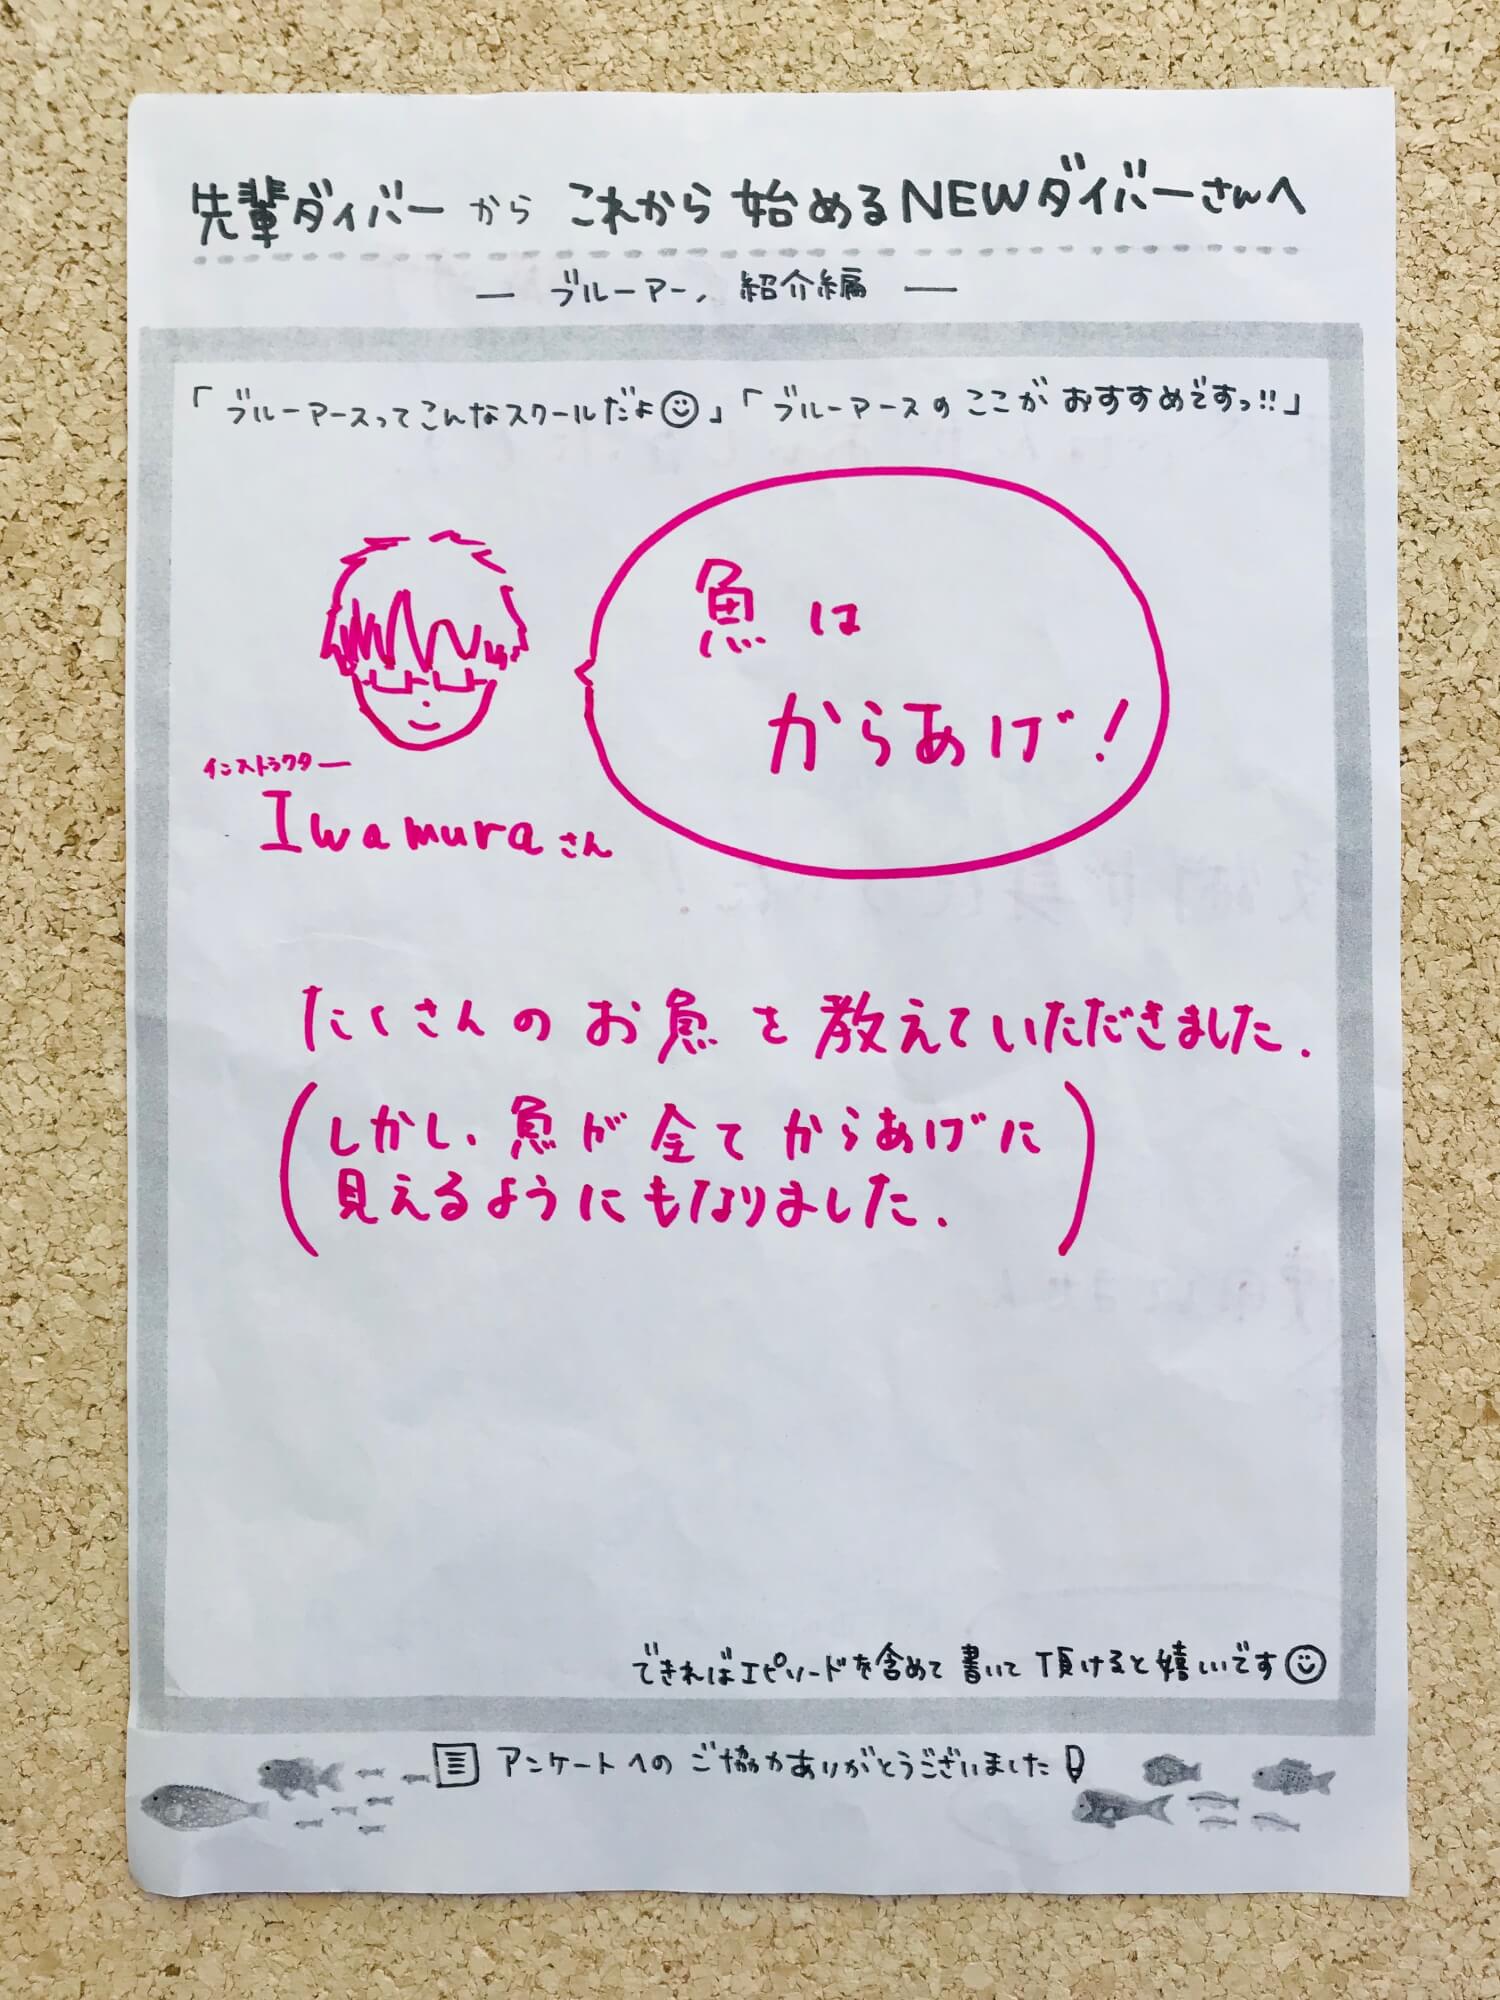 先輩ダイバーから これから 始めるNEWダイバーさんへ
― ブルーアー、紹介編 ―
「ブルーアースってこんなスクールだよ☺」「ブルーアースのここが おすすめですっ!!」
魚は
からあげ!
インストラクター
Iwamuraさん
たくさんのお魚を教えていただきました.
(しかし、魚が全てからあげに
見えるようにもなりました.)
できればエピソードを含めて書いて頂けると嬉しいです☺
アンケートへのご協力ありがとうございました